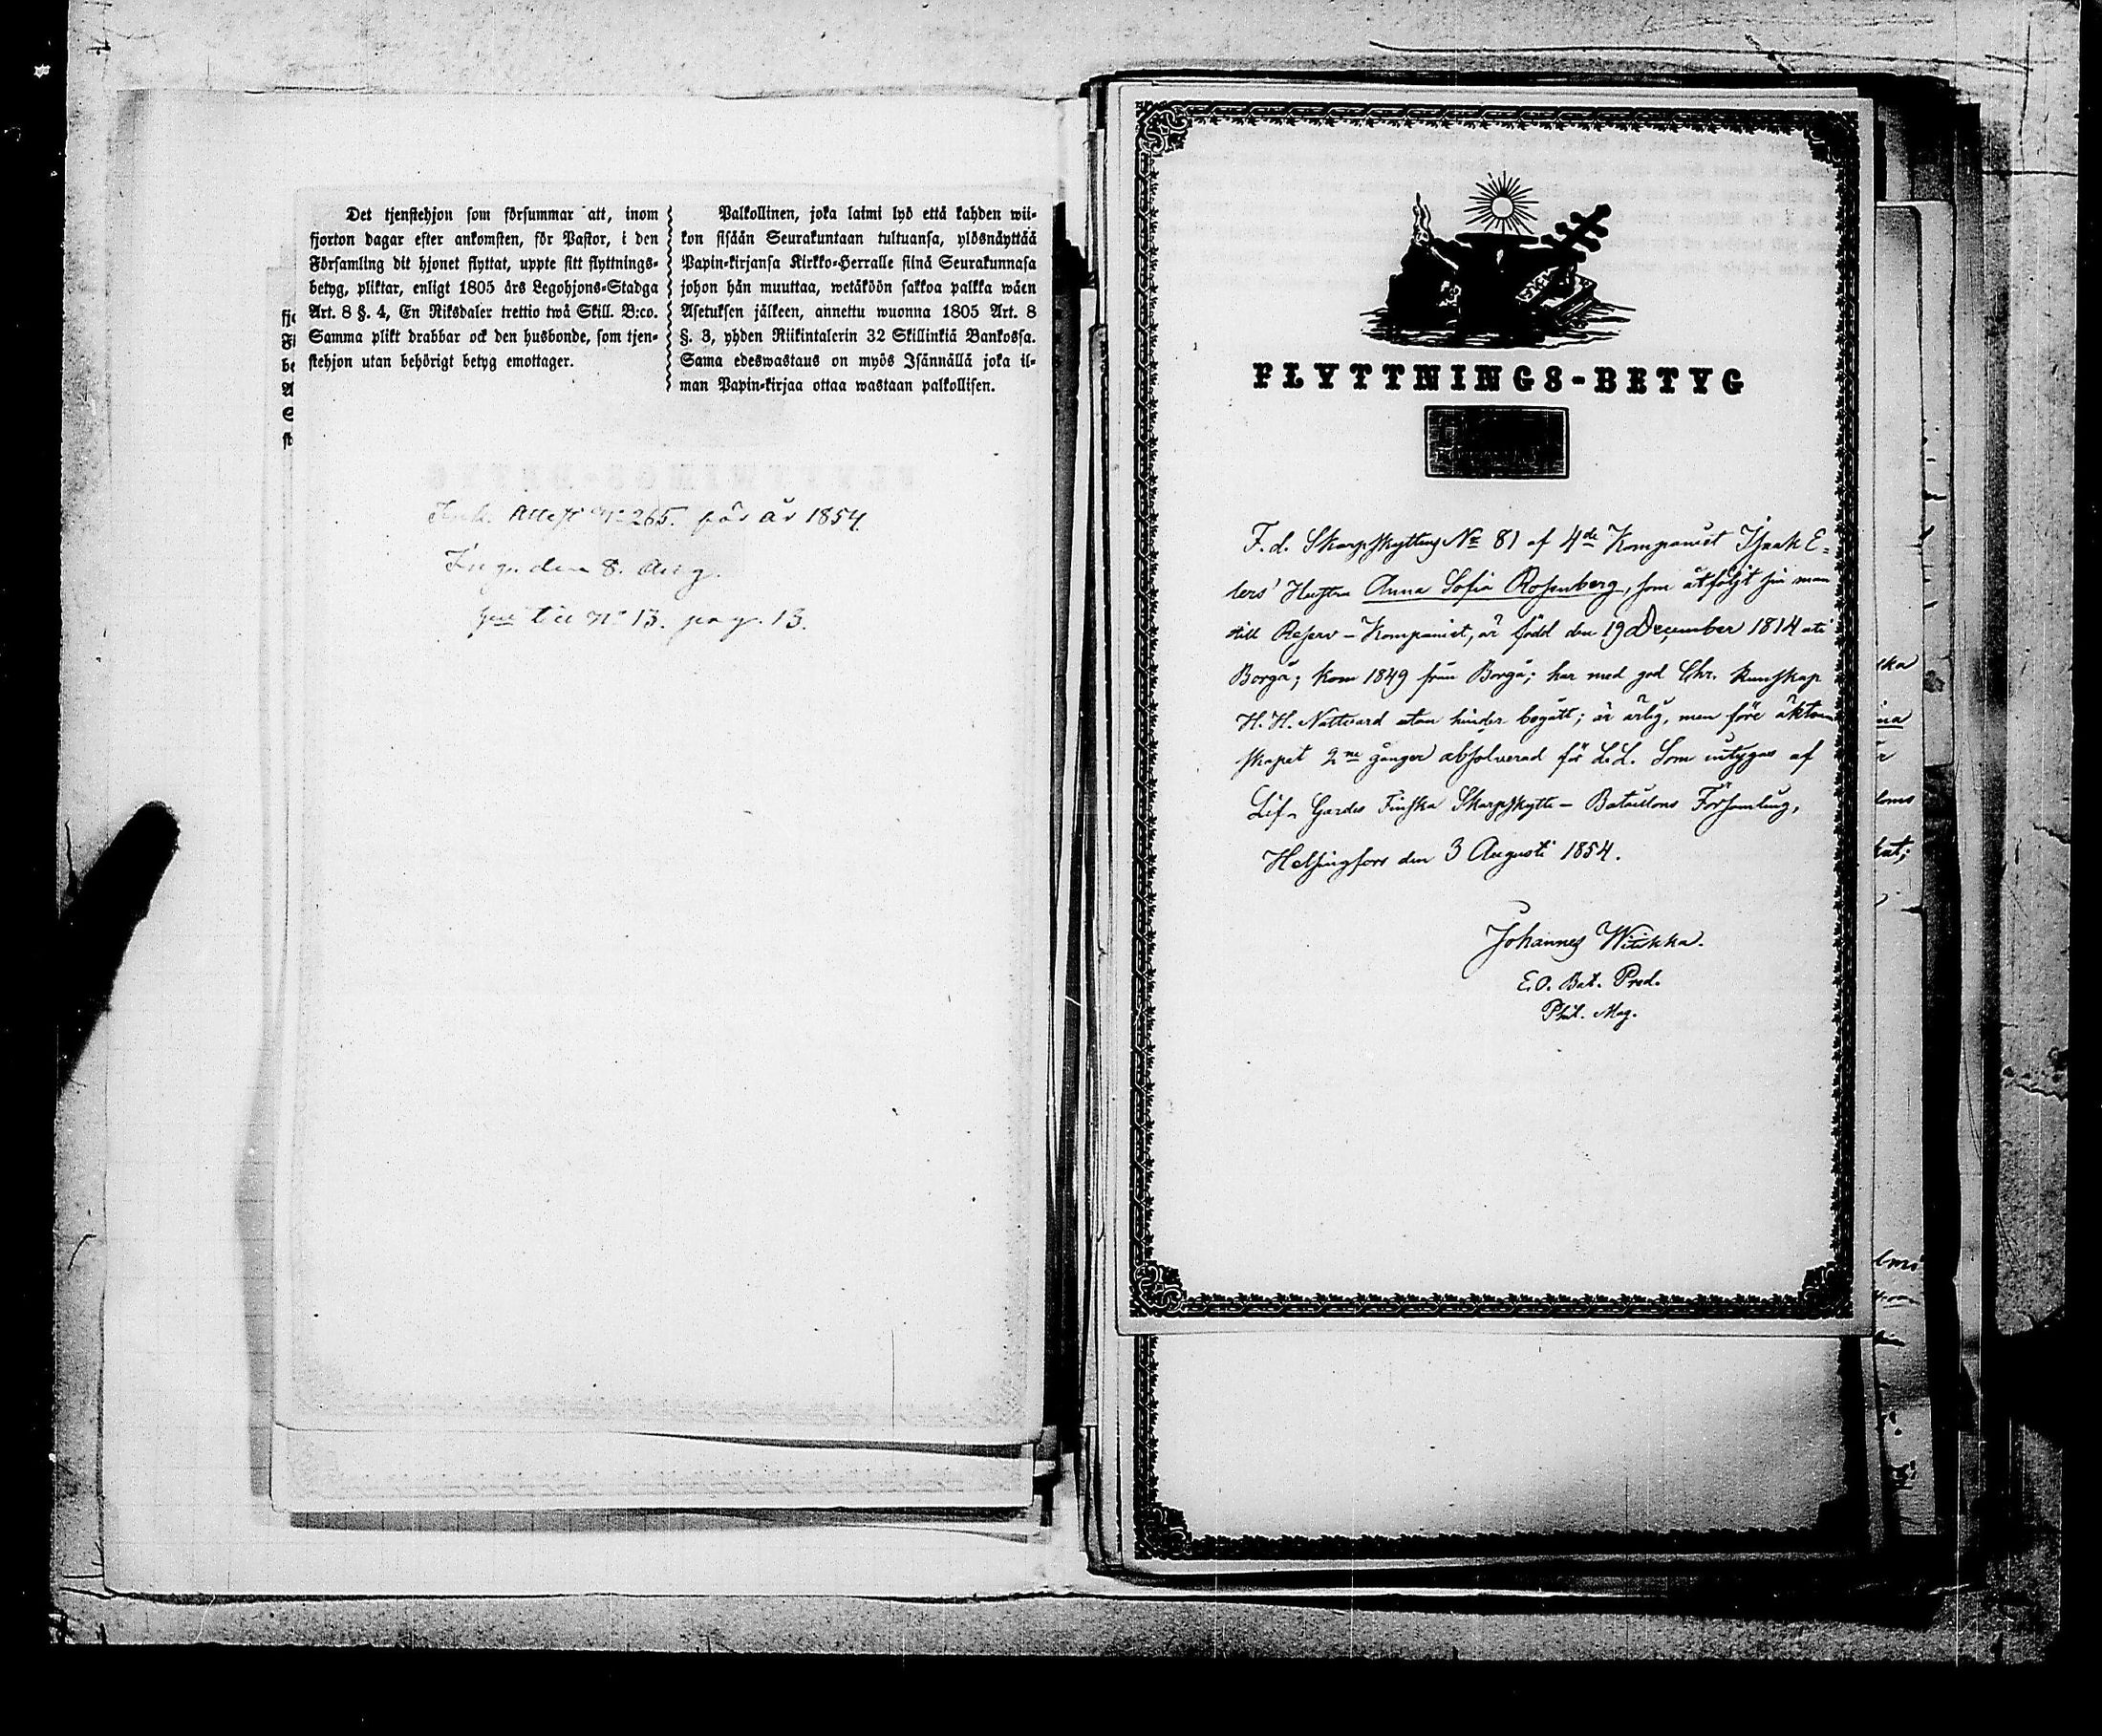 Det tjenstehjon som försummar att, inom
fjorton dagar efter ankomsten, för Pastor, i den
Församling dit hjonet flyttat, uppte sitt flyttnings-
betyg, pliktar, enligt 1805 års Legohjons-Stadga
Art. 8 §. 4, En Riksdaler trettio twå Skill. B:co.
Samma plikt drabbar ock den husbonde, som tjen-
stehjon utan behörigt betyg emottager.
Palkollinen, joka laimi lyö että kahden wii-
kon sisään Seurakuntaan tultuansa, ylösnäyttää
Papin-kirjansa Kirkko-Herralle siinä Seurakunnasa
johon hän muuttaa, wetäköön sakkoa palkka wäen
Asetuksen jälkeen, annettu wuonna 1805 Art. 8
§. 3, yhden Riikintalerin 32 Skillinkiä Bankossa.
Sama edeswastaus on myös Isännällä joka il-
man Papin-kirjaa ottaa wastaan palkollisen.
Attest N:o 265. för år 1854.
den 8. Aug.
N:o 13. pag. 13.
FLYTTNINGS-BETYG
F. d. Skarpskyttens No 81 af 4de Kompaniet Isaak E-
lers' Hustru Anna Sofia Rosenberg, som åtföljt sin man
till Reserv-Kompaniet, är född den 19 December 1814 uti
Borgå; kom 1849 från Borgå; har med god Chr. kunskap
H. H. Nattvard utan hinder begått; är ärlig, men före äkten-
skapet 2ne gånger absolverad för L.L. Som intygas af
Lif-Gardes Finska Skarpskytte-Bataillons Församling,
Helsingfors den 3 Augusti 1854.
Johannes Wiikka.
E.O. Bat. Pred.
Phil. Mag.